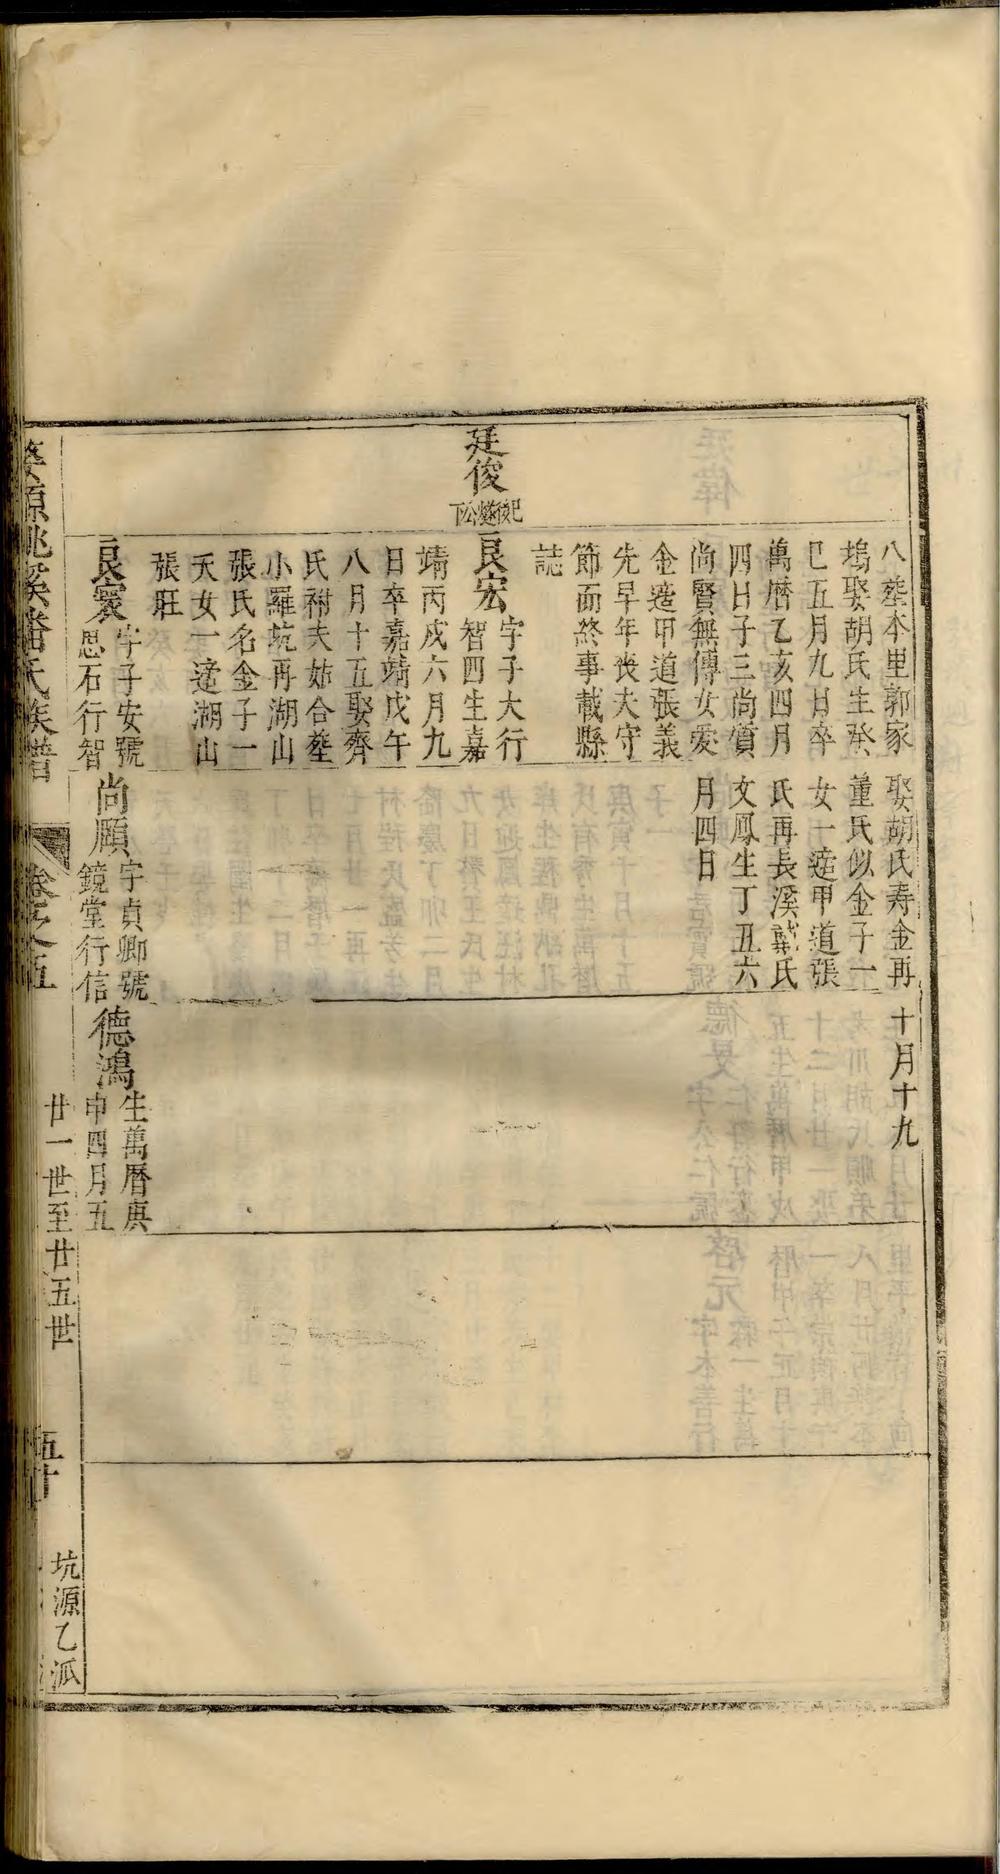 廷俊
八塟本里郭家
塢娶胡氏生癸
巳五月九日卒
萬曆乙亥四月
四日子三尚質
尚賢無傳女愛
金適甲道張義
先早年喪夫守
節而終事載縣
誌
良宏
字子大行
智四生嘉
靖丙戌六月九
日卒嘉靖戊午
八月十五娶齊
氏祔夫姑合塟
小羅坑再湖山
張氏名金子一
天女一適湖山
張旺
良寰
字子安號
思石行智
娶胡氏寿金再
董氏似金子一
女一適甲道張
氏再長溪戴氏
文鳳生丁丑六
月四日
尚願
字貞卿號
鏡堂行信
十月十九
德鴻
生萬曆庚
申四月五
婺源桃溪潘氏族譜
卷之五
廿一世至廿五世
五十
坑源乙派